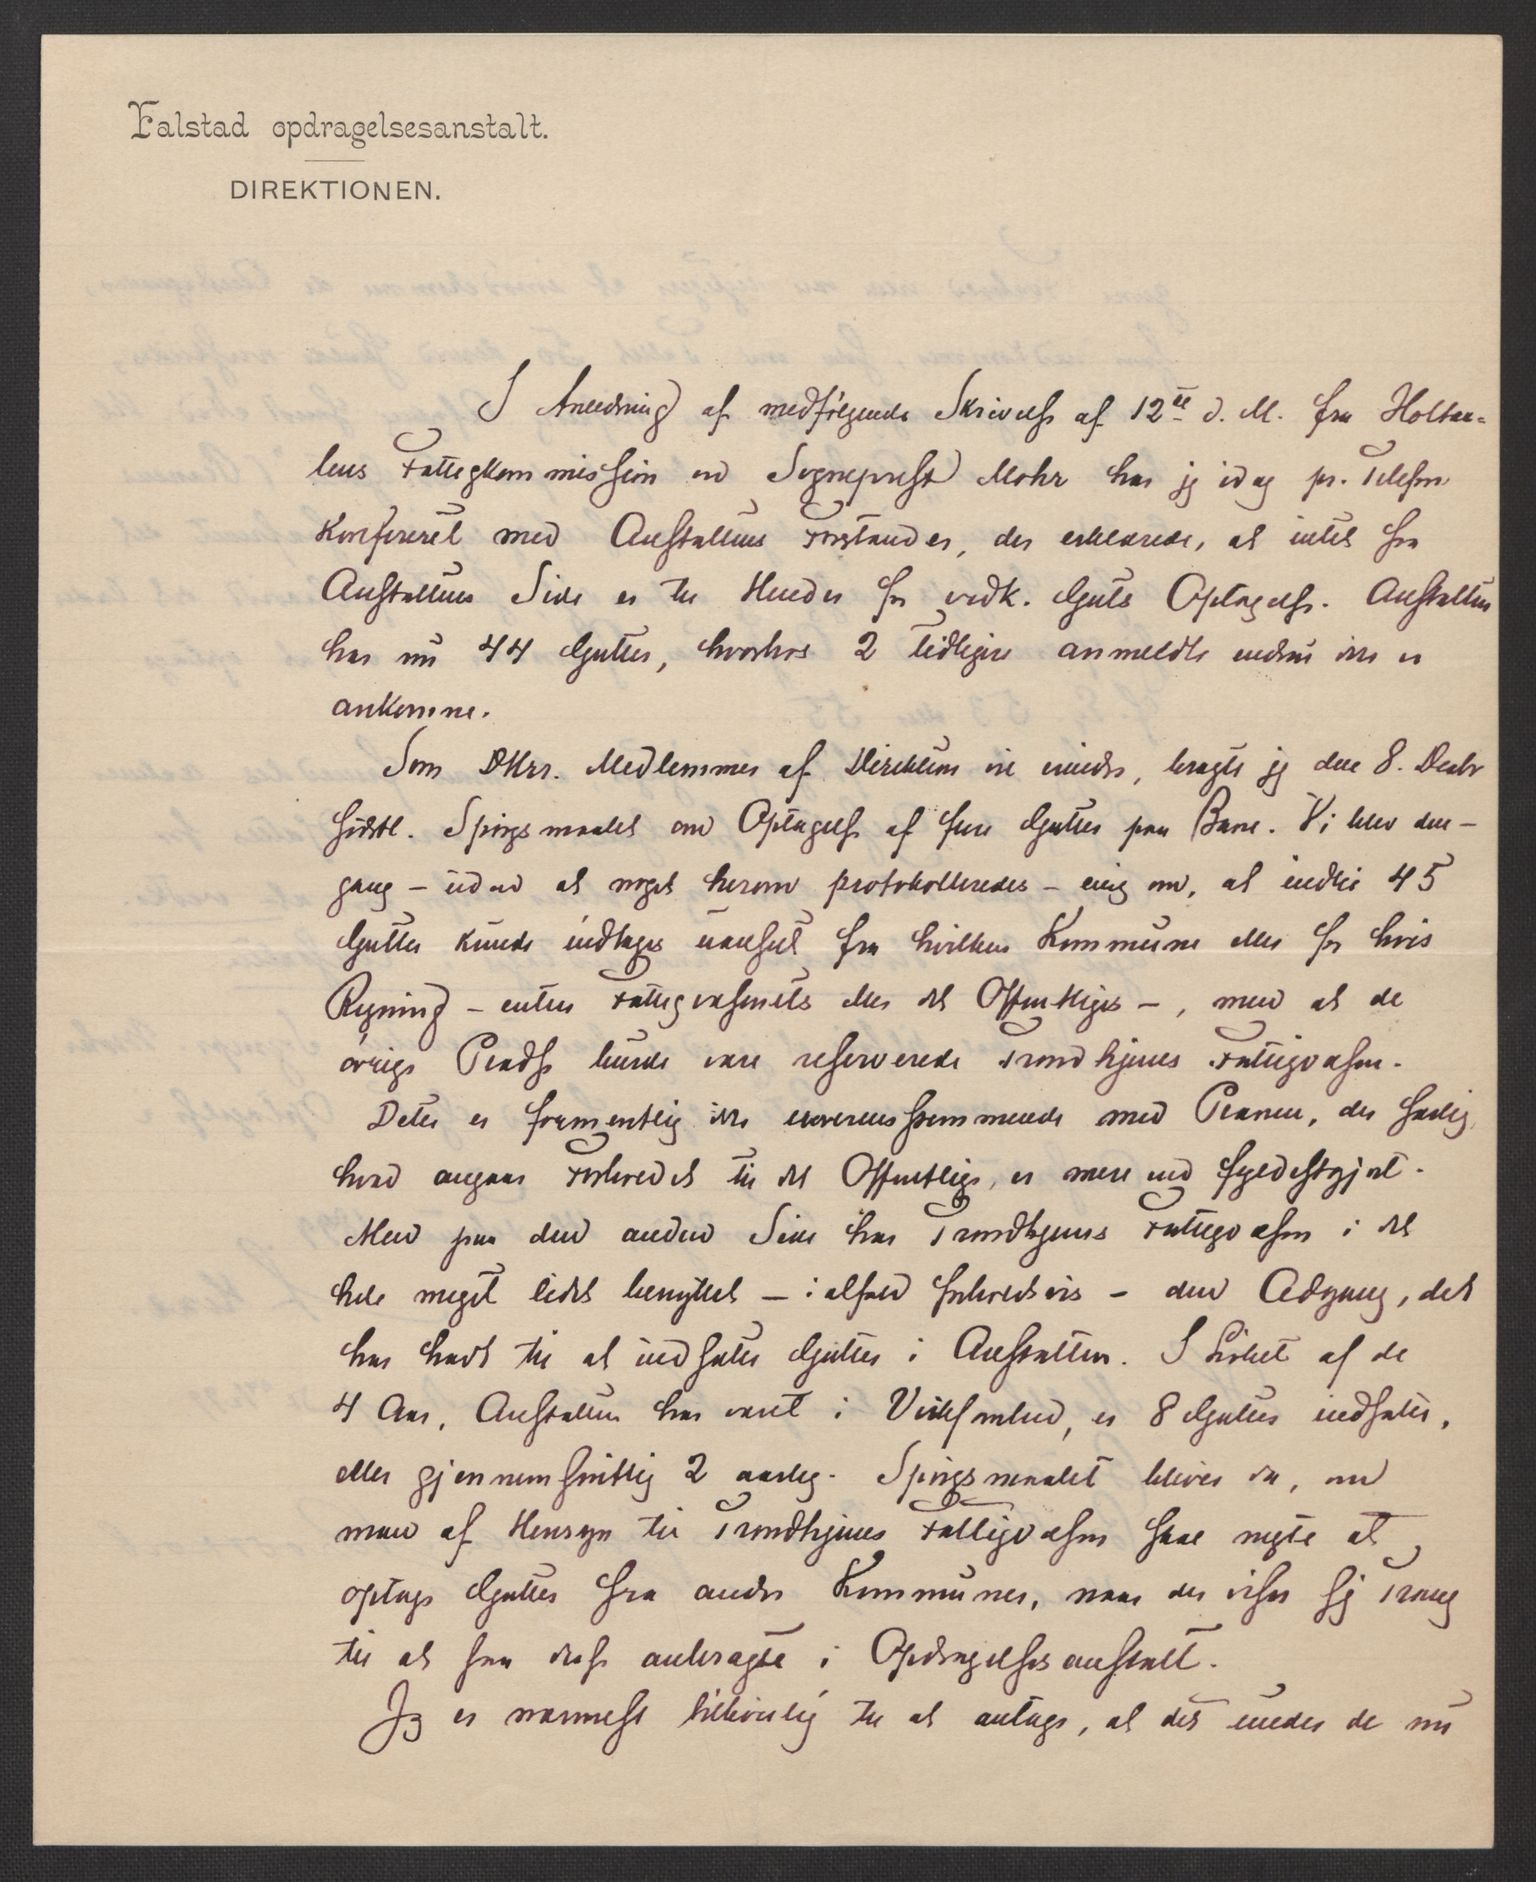 Falstad opdragelsesanstalt.
DIREKTIONEN.
I Anledning af medfølgende Skrivelse af 12te d. M. fra Holtaa-
lens Fattigkommission ved Sogneprest Mohr har jeg idag pr. Telefon
konfereret med Anstaltens Forstander, der erklærede, at intet fra
Anstaltens Side er til Hinder for vedk. Guts Optagelse. Anstalten
har nu 44 Gutter, hvorhos 2 tidligere anmeldte endnu ikke er
ankomne.
Som DHrr. Medlemmer af Direktionen vil erindre, bragte jeg den 8. Decbr
sidstl. Spørgsmaalet om Optagelse af flere Gutter paa Bane. Vi blev den-
gang – uden at noget herom protokolleredes – enig om, at indtil 45
Gutter kunde indtages uanset fra hvilken Kommune eller for hvis
Regning – enten Fattigvæsenets eller det Offentliges –, men at de
øvrige Pladse burde være reserverede Trondhjems Fattigvæsen.
Dette er formentlig ikke overensstemmende med Planen, der særlig,
hvad angaar Forholdet til det Offentlige, er mere end fyldestgjort.
Men paa den anden Side har Trondhjems Fattigvæsen i det
hele meget lidet benyttet – ialfald forholdsvis – den Adgang, det
har havt til at indsætte Gutter i Anstalten. I Løbet af de
4 Aar, Anstalten har været i Virksomhed, er 8 Gutter indsatte,
eller gjennemsnitlig 2 aarlig. Spørgsmaalet bliver da, om
man af Hensyn til Trondhjems Fattigvæsen skal negte at
optage Gutter fra andre Kommuner, naar der viser sig Trang
til at faa disse anbragte i Opdragelsesanstalt.
Jeg er nærmest tilbøielig til at antage, at det under de nu